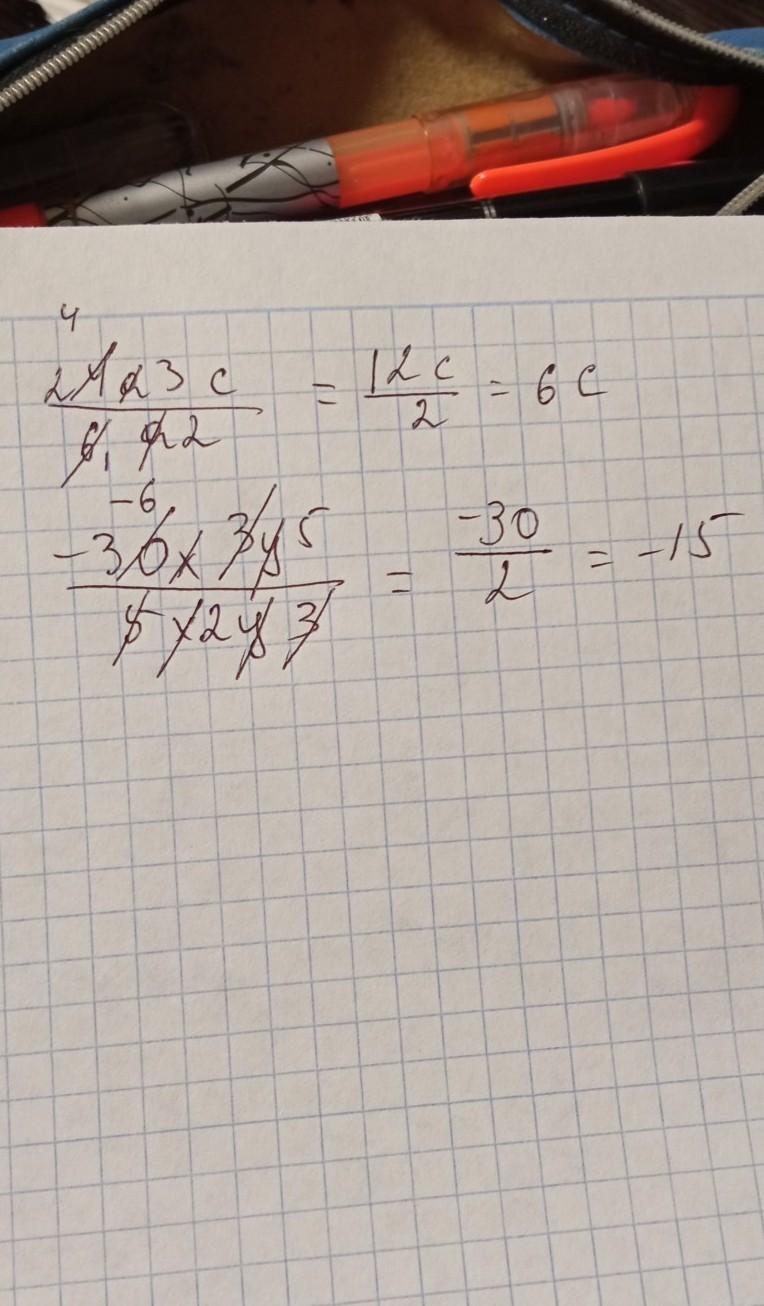 4
24a3c / 6, a2 = 12c / 2 = 6c
-6
-30x3y5 / 5x2y3 = -30 / 2 = -15